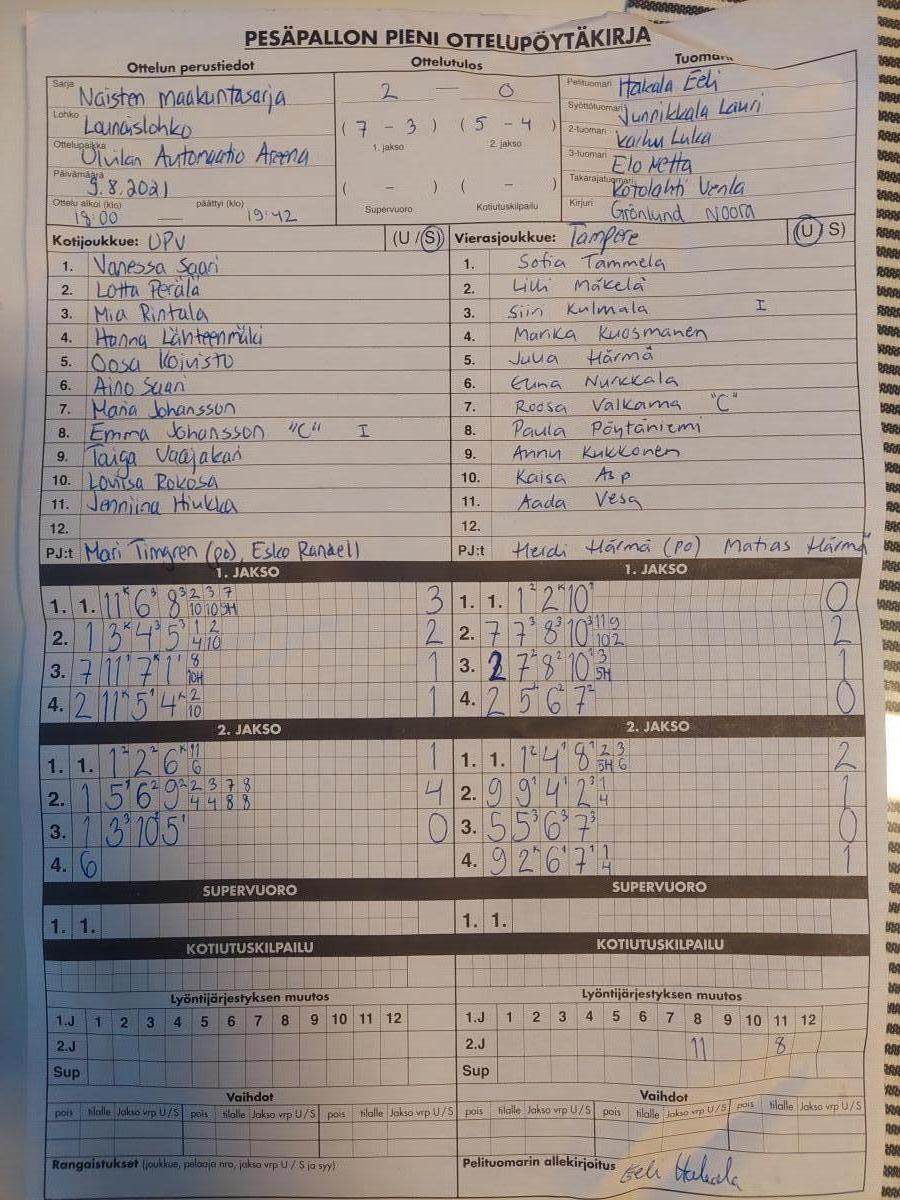 PESÄPALLON PIENI OTTELUPÖYTÄKIRJA
Ottelun perustiedot
Sarja Naisten maakuntasarja
Lohko Lounaislohko
Ottelupaikka Ulvilan Automaatio Areena
Päivämäärä 9.8.2021
Ottelu alkoi (klo) 18:00 — päättyi (klo) 19:42
Ottelutulos
2 — 0
(7 - 3) (5 - 4)
1. jakso 2. jakso
( - ) ( - )
Supervuoro Kotiutuskilpailu
Pelituomari Hakala Eeli
Syöttötuomari Junnikkala Lauri
2-tuomari Karhu Luka
3-tuomari Elo Netta
Takarajatuomari Kotolahti Venla
Kirjuri Grönlund Noora
Kotijoukkue: UPV (U / S)
1. Vanessa Saari
2. Lotta Perälä
3. Mia Rintala
4. Hanna Lähteenmäki
5. Oosa Koivisto
6. Aino Saari
7. Maria Johansson
8. Emma Johansson "C" I
9. Taiga Vaajakari
10. Loviisa Rokosa
11. Jenniina Hiukka
12.
PJ:t Mari Timgren (po), Esko Randell
Vierasjoukkue: Tampere (U / S)
1. Sofia Tammela
2. Lilli Mäkelä
3. Siiri Kulmala I
4. Marika Kuosmanen
5. Julia Härmä
6. Elina Nurkkala
7. Roosa Valkama "C"
8. Paula Pöytäniemi
9. Annu Kukkonen
10. Kaisa Asp
11. Aada Vesa
12.
PJ:t Heidi Härmä (po) Matias Härmä
1. JAKSO
1. 1. 11ᴷ 6³ 8³ 2/10 3/10 7/5H 3
2. 1 3ᴷ 4³ 5³ 1/4 2/10 2
3. 7 11¹ 7ᴷ 1¹ 8/10H 1
4. 2 11ᴷ 5¹ 4ᴷ 2/10 1
1. JAKSO
1. 1. 1² 2ᴷ 10¹ 0
2. 7 7³ 8³ 10³ 11/10 9/2 2
3. 2 7² 8² 10¹ 3/5H 1
4. 2 5 6² 7² 0
2. JAKSO
1. 1. 1² 2² 6ᴷ 11/6 1
2. 1 5¹ 6² 9² 2/4 3/4 7/8 8/8 4
3. 1 3³ 10 5¹ 0
4. 6
2. JAKSO
1. 1. 1² 4¹ 8¹ 2/5H 3/6 2
2. 9 9¹ 4¹ 2³ 1/4 1
3. 5 5³ 6³ 7³ 0
4. 9 2ᴷ 6¹ 7¹ 1/4 1
SUPERVUORO
1. 1.
SUPERVUORO
1. 1.
KOTIUTUSKILPAILU
KOTIUTUSKILPAILU
Lyöntijärjestyksen muutos
1.J 1 2 3 4 5 6 7 8 9 10 11 12
2.J
Sup
Lyöntijärjestyksen muutos
1.J 1 2 3 4 5 6 7 8 9 10 11 12
2.J 11 8
Sup
Vaihdot
pois tilalle Jakso vrp U/S pois tilalle Jakso vrp U/S pois tilalle Jakso vrp U/S
Vaihdot
pois tilalle Jakso vrp U/S pois tilalle Jakso vrp U/S pois tilalle Jakso vrp U/S
Rangaistukset (joukkue, pelaaja nro, jakso vrp U / S ja syy)
Pelituomarin allekirjoitus Eeli Hakala